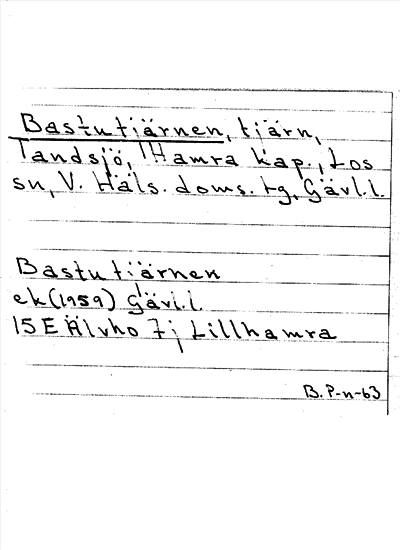 Bastutjärnen, tjärn,
Tandsjö, Hamra kap., Los
sn, V. Häls. doms. tg, Gävl.l.
Bastutjärnen
ek (1959) Gävl.l.
15E Älvho 7j Lillhamra
B. P-n-63